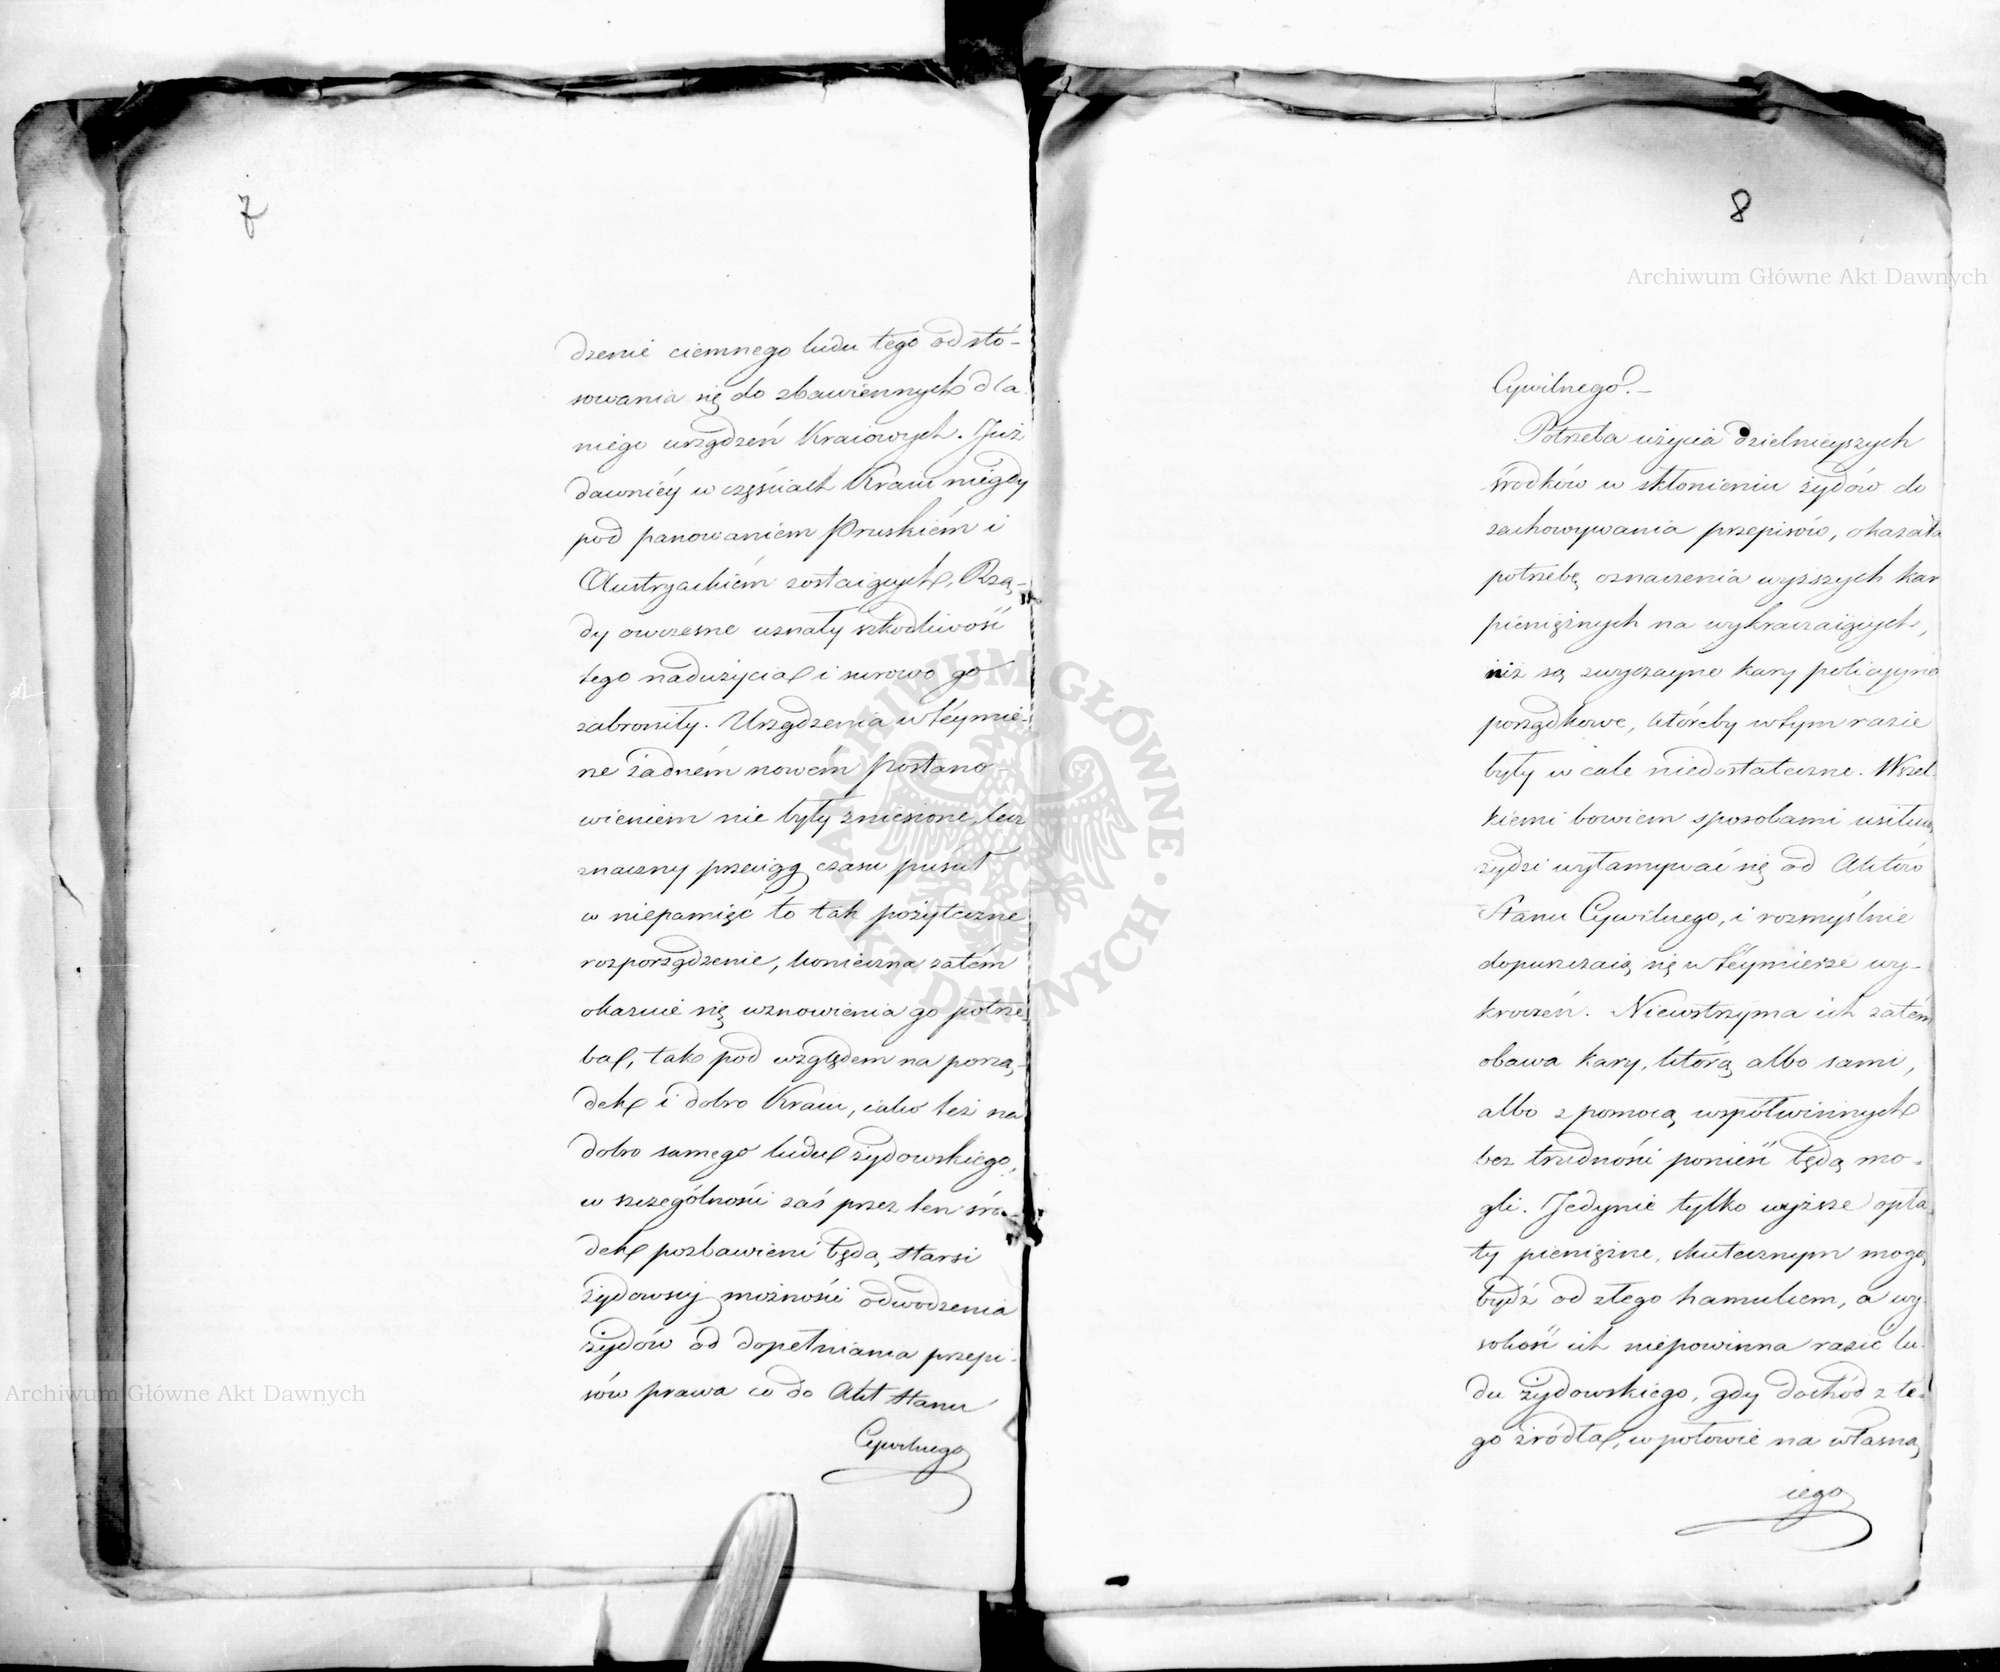 7
dzenie ciemnego ludu tego od sto-
sowania się do zbawiennych dla
niego urządzeń Kraiowych. Już
dawniéy w częściach Kraiu niegdy
pod panowaniem Pruskiém i
Austryackiém zostaiących, Rzą-
dy owczesne uznały szkodliwość
tego nadużycia i surowo go
zabroniły. Urządzenia w téy mie-
rze żadném nowém postano-
wieniem nie były zniesione, lecz
znaczny przeciąg czasu puścił
w niepamięć to tak pożyteczne
rozporządzenie, konieczna zatém
okazuie się wznowienia go potrze-
ba, tak pod względem na porzą-
dek i dobro Kraiu, iako też na
dobro samego ludu żydowskiego,
w szczególności zaś przez ten śro-
dek pozbawieni będą starsi
żydowscy możności odwodzenia
żydów od dopełniania przepi-
sów prawa co do Akt Stanu
Cywilnego
8
Archiwum Główne Akt Dawnych
Cywilnego.-
Potrzeba użycia dzielnieyszych
środków w skłonieniu żydów do
zachowywania przepisów, okazała
potrzebę oznaczenia wyższych kar
pieniężnych na wykraczaiących,
niż są zwyczayne kary policyyno
porządkowe, któreby w tym razie
były w cale niedostateczne. Wszel-
kiemi bowiem sposobami usiłuią
żydzi wyłamywać się od Aktów
Stanu Cywilnego, i rozmyślnie
dopuszczaią się w téymierze wy-
kroczeń. Niewstrzyma ich zatém
obawa kary, którą albo sami,
albo z pomocą współwinnych
bez trudności ponieść będą mo-
gli. Jedynie tylko wyższe opła-
ty pieniężne, skutecznym mogą
bydź od złego hamulcem, a wy-
sokość ich niepowinna razić lu-
du żydowskiego, gdy dochód z te-
go źródła, w połowie na własną
iego
Archiwum Główne Akt Dawnych
ARCHIWUM GŁÓWNE · AKT DAWNYCH ·